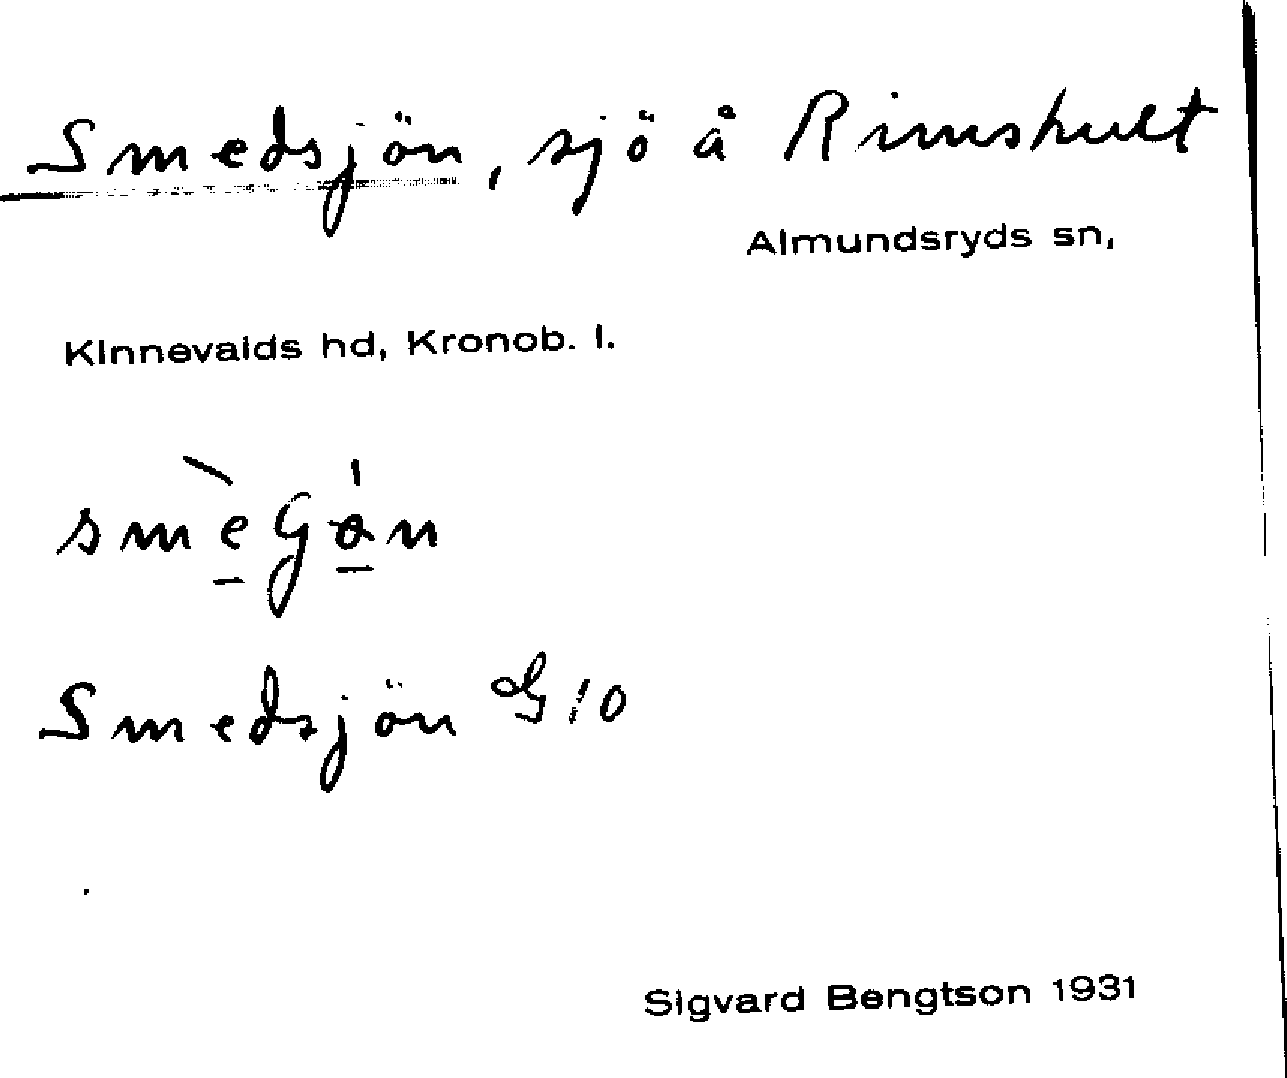 Smedsjön, sjö å Rimshult
Almundsryds sn,
Kinnevalds hd, Kronob. l.
Smedsjön G 10
Sigvard Bengtson 1931